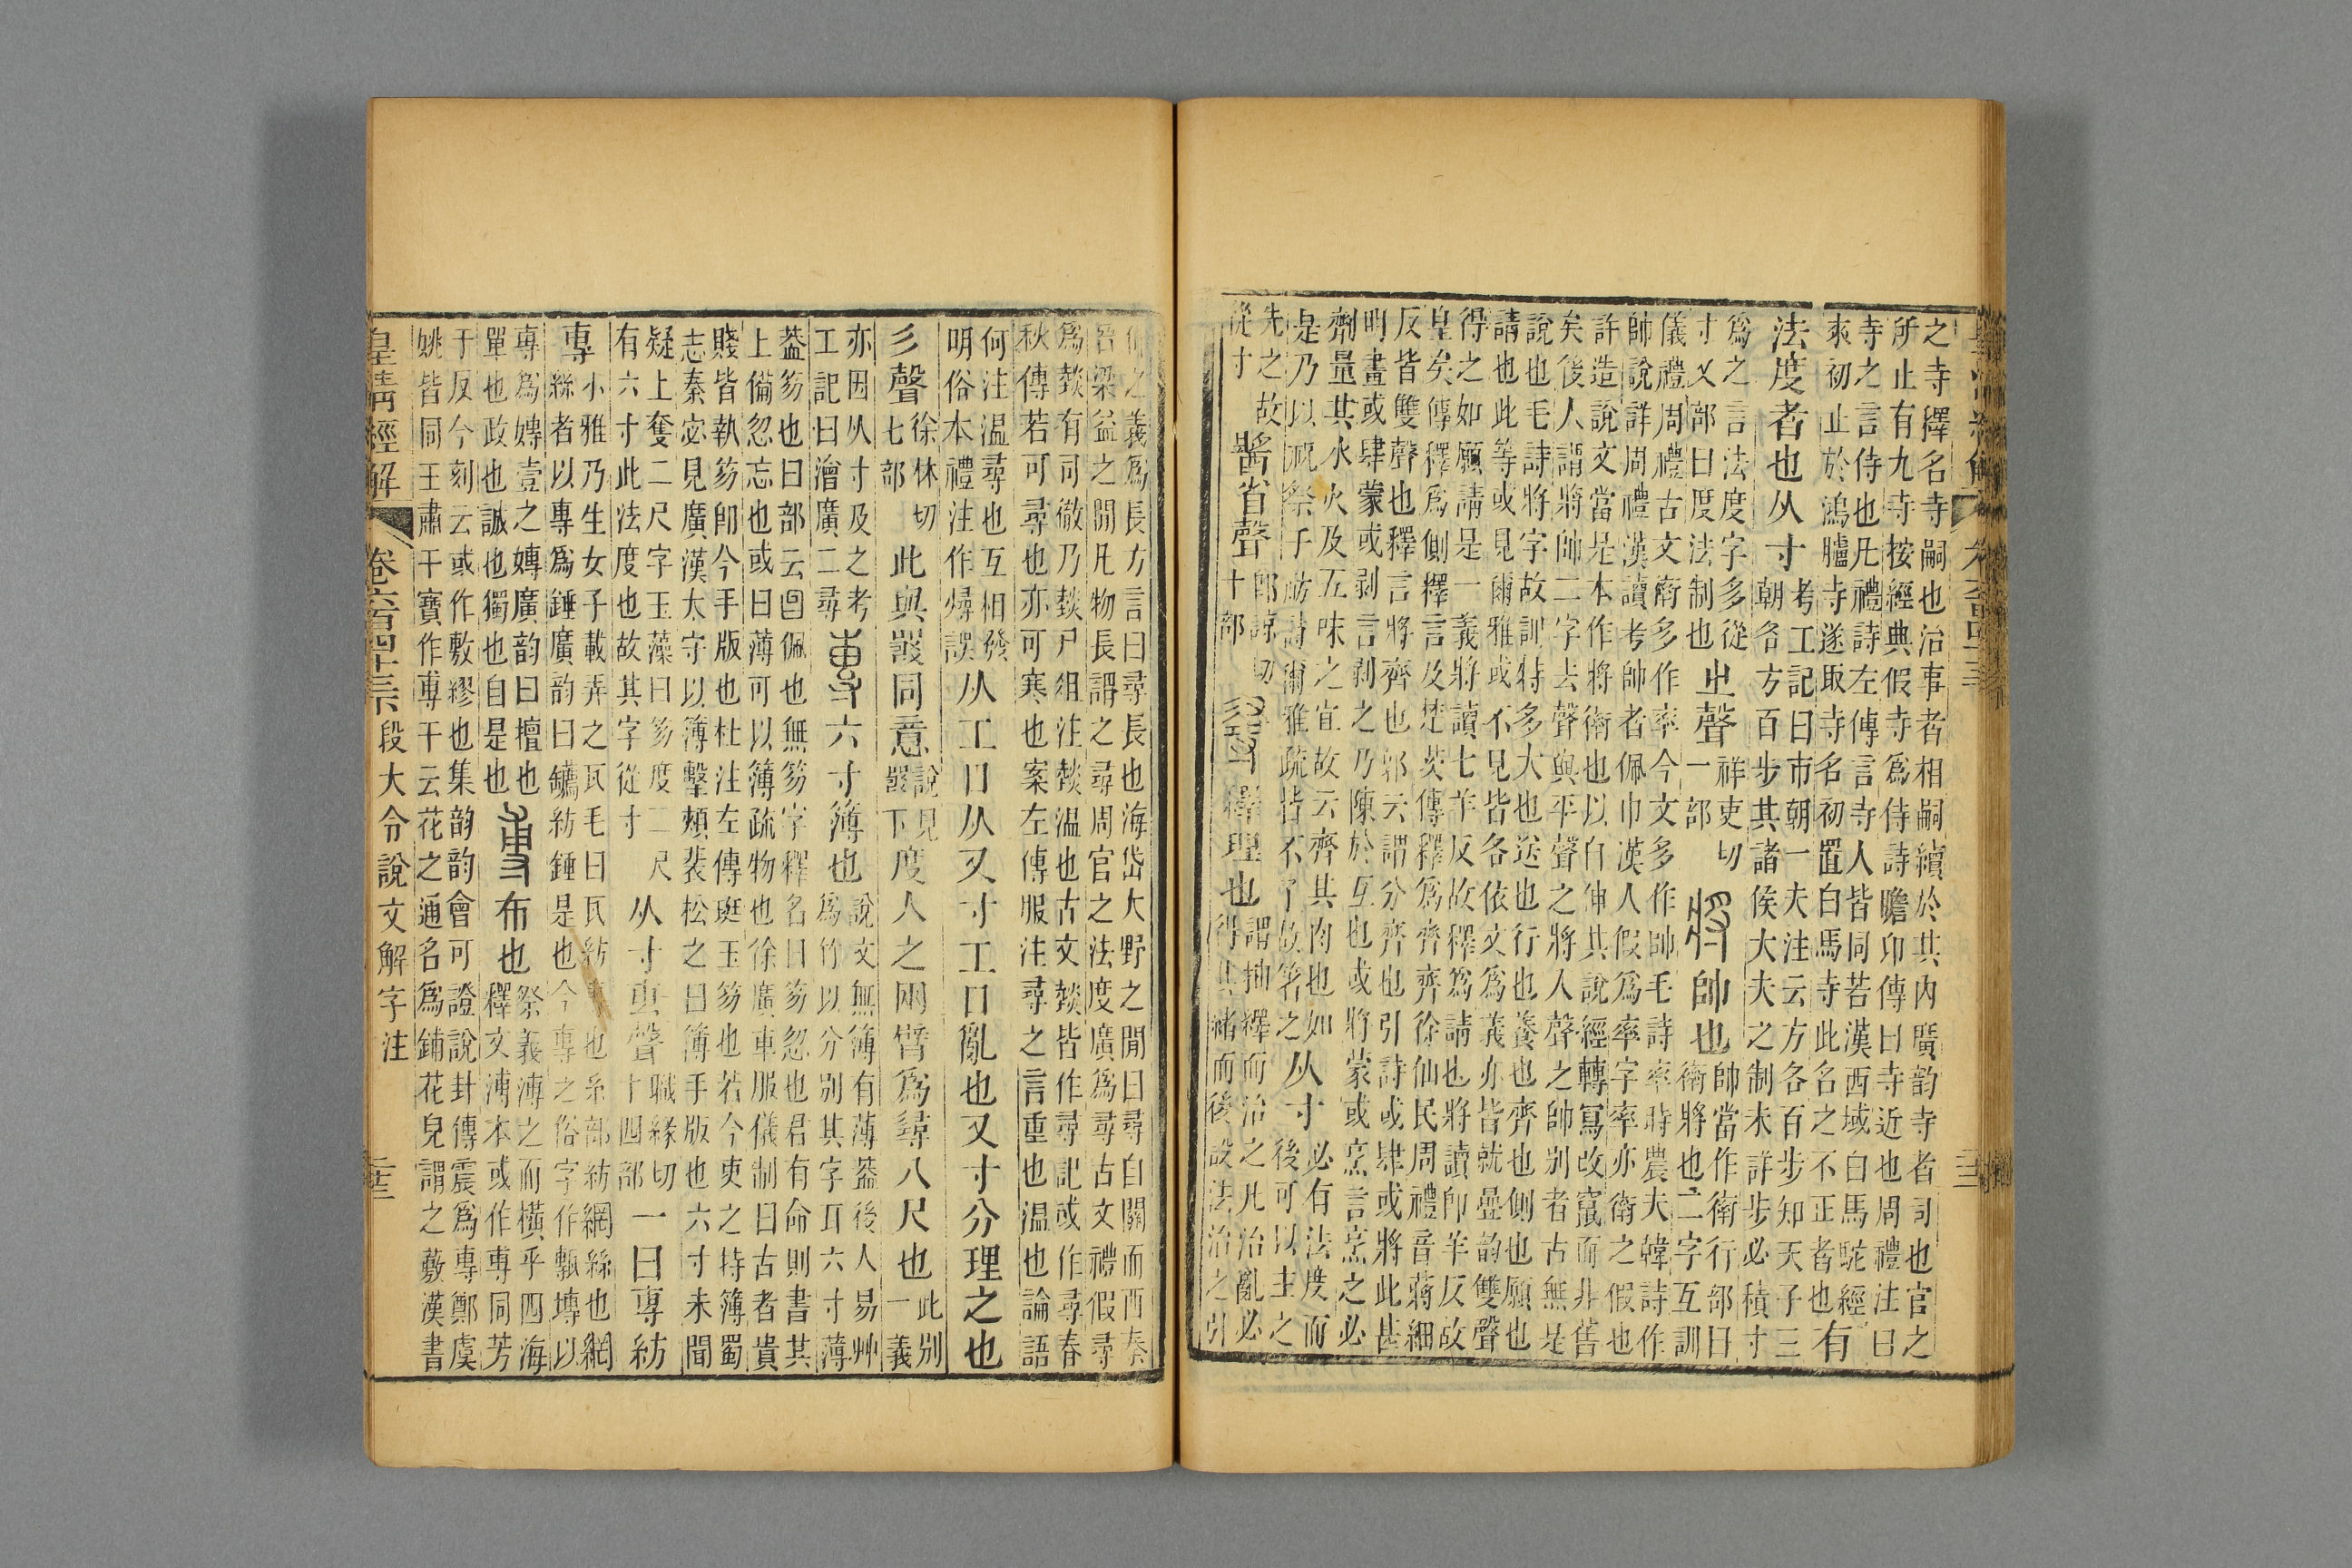 之寺釋名寺嗣也治事者相嗣續於其内廣韵寺者司也官之
所止有九寺按經典假寺爲侍詩瞻卬傳曰寺近也周禮注曰
寺之言侍也凡禮詩左傳言寺人皆同若漢西域白馬駝經
來初止於鴻臚寺遂取寺名初置白馬寺此名之不正者也
有
法度者也从寸
考工記曰市朝一夫注云方各百步知天子三
朝各方百步其諸侯大夫之制未詳步必積寸
爲之言法度字多從
寸又部曰度法制也
㞢聲
祥吏切
一部
將
帥也
帥當作𧗿行部曰
𧗿將也二字互訓
儀禮周禮古文𧗿多作率今文多作帥毛詩率時農夫韓詩作
帥說詳周禮漢讀考帥者佩巾漢人假爲率字率亦𧗿之假也
許造說文當是本作將𧗿也以自伸其說經轉寫改竄而非舊
矣後人謂將帥二字去聲與平聲之將人聲之帥别者古無是
說也毛詩將字故訓特多大也送也行也養也齊也側也願也
請也此等或見爾雅或不見皆各依文爲義亦皆就曡韵雙聲
得之如願請是一義將讀七羊反故釋爲請也將讀卽羊反故
皇矣傳釋爲側釋言及楚茨傳釋爲齊齊徐仙民周禮音蔣細
反皆雙聲也釋言將齊也郭云謂分齊也引詩或肆或將此甚
明畫或肆蒙或剥言剥之乃陳於互也或將蒙或烹言烹之必
劑量其水火及五味之宜故云齊其肉也如
是乃以溉祭子肪詩爾雅疏皆不了故箸之
从寸
必有法度而
後可以主之
先之故
從寸
醬省聲
卽諒切
十部
繹理也
謂抽繹而治之凡治亂必
得其緒而後設法治之引
伸之義爲長方言曰尋長也海岱大野之閒曰尋自關而西秦
晉梁益之閒凡物長謂之尋周官之法度廣爲尋古文禮假尋
爲燅有司徹乃燅尸俎注燅温也古文燅皆作尋記或作尋春
秋傳若可尋也亦可寒也案左傳服注尋之言重也温也論語
何注温尋也互相發
明俗本禮注作燖誤
从工口从又寸工口亂也又寸分理之也
彡聲
徐林切
七部
此與𤕦同意
說見
𤕦下
度人之兩臂爲尋八尺也
此别
一義
亦因从寸及之考
工記曰澮廣二尋
專
六寸簿也
說文無簿有薄蓋後人易艸
爲竹以分别其字耳六寸薄
蓋笏也曰部云𠙹佩也無笏字釋名曰笏忽也君有命則書其
上備忽忘也或曰薄可以簿疏物也徐廣車服儀制曰古者貴
賤皆執笏卽今手版也杜注左傳珽玉笏也若今吏之持簿蜀
志秦宓見廣漢太守以簿擊頰裴松之曰簿手版也六寸未聞
疑上奪二尺字玉藻曰笏度二尺
有六寸此法度也故其字從寸
从寸叀聲
職緣切
十四部
一曰專紡
專
小雅乃生女子載弄之瓦毛曰瓦紡專也糸部紡網絲也網
絲者以專爲錘廣韵曰䥥紡錘是也今專之俗字作甎塼以
專爲嫥壹之嫥廣韵曰擅也
單也政也誠也獨也自是也
布也
祭義溥之而橫乎四海
釋文溥本或作尃同芳
于反今刻云或作敷繆也集韵韵會可證說卦傳震爲尃鄭虞
姚皆同王肅干寶作尃干云花之通名爲鋪花皃謂之蔽漢書
皇清經解
卷六百四十三
段大令說文解字注